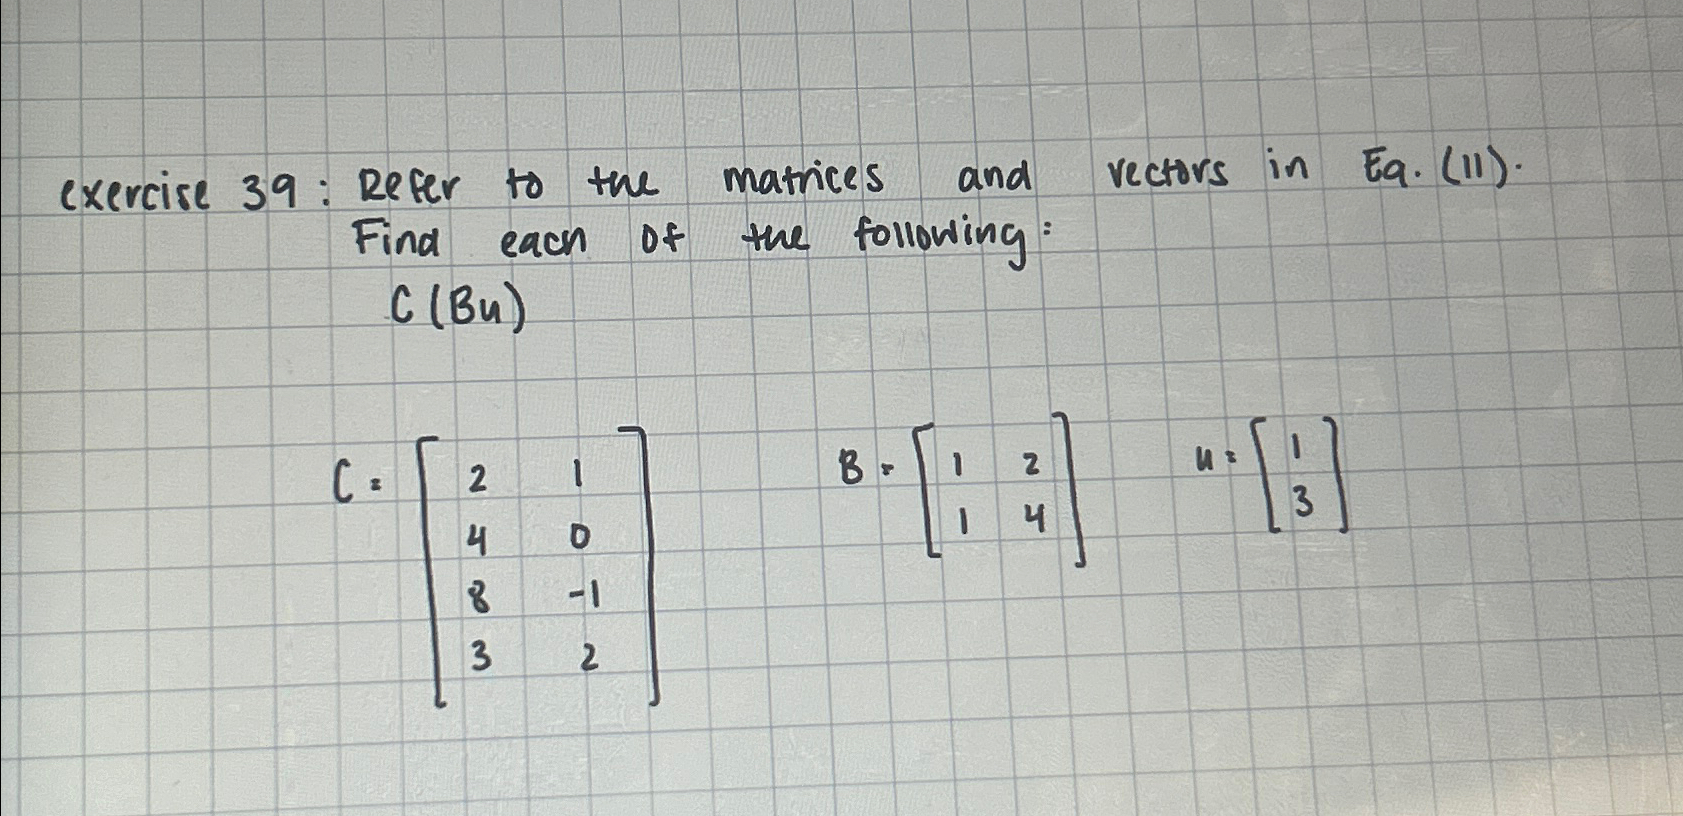 exercise 39: Refer to the matrices and vectors in Eq. (11).
Find each of the following:
C(Bu)
C = [2 1
4 0
8 -1
3 2]
B = [1 2
1 4]
u = [1
3]